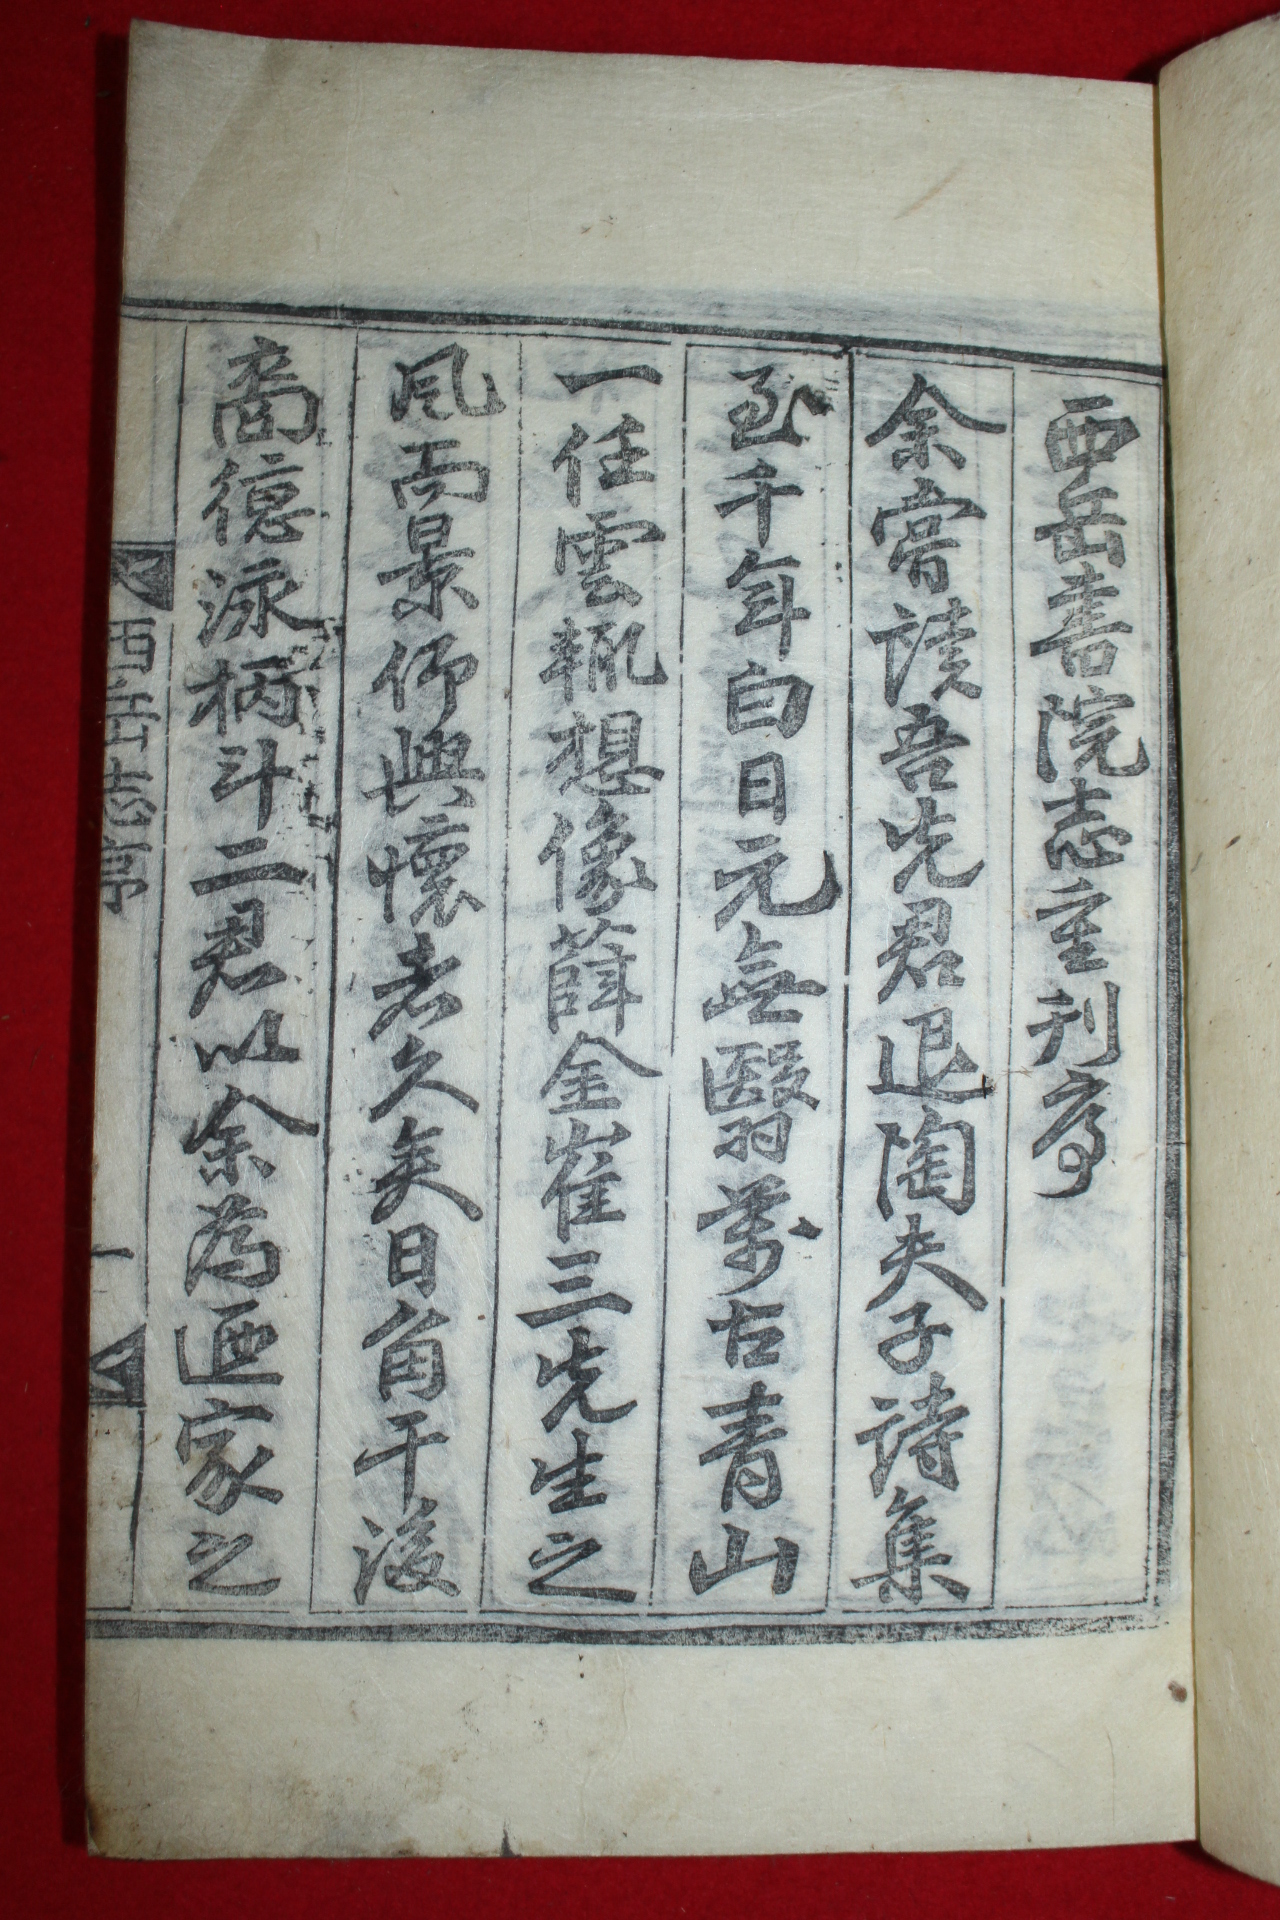 西岳書院志重刊序
余甞讀吾先君退陶夫子詩集
至千年白日元無翳萬古青山
一任雲輒想像薛金崔三先生之
風而景仰興懷者久矣日角干後
裔德泳柄斗二君以余為迺家之
西岳志序
一